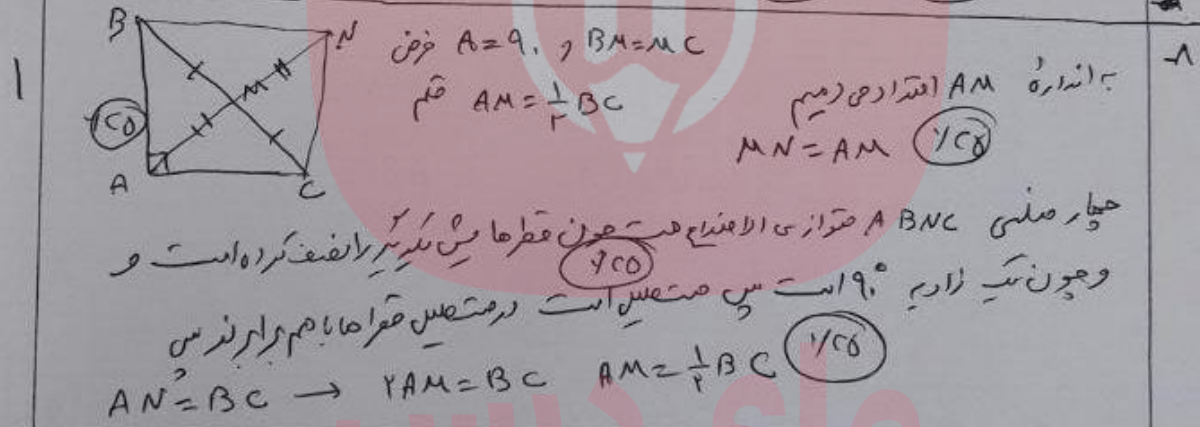 ۸-
B N فرض A=۹۰ و BM=MC
۱
M حکم AM=۱/۲ BC
به اندازهٔ AM امتداد می دهیم
۰/۲۵ MN=AM ۰/۲۵
A C
چهار ضلعی ABNC متوازی الاضلاع است چون قطرها یش یکدیگر را نصف کرده است و
۰/۲۵
و چون یک زاویه ۹۰° است پس مستطیل است در مستطیل قطرها با هم برابرند پس
AN=BC → ۲AM=BC AM=۱/۲ BC ۰/۲۵
ماز درس